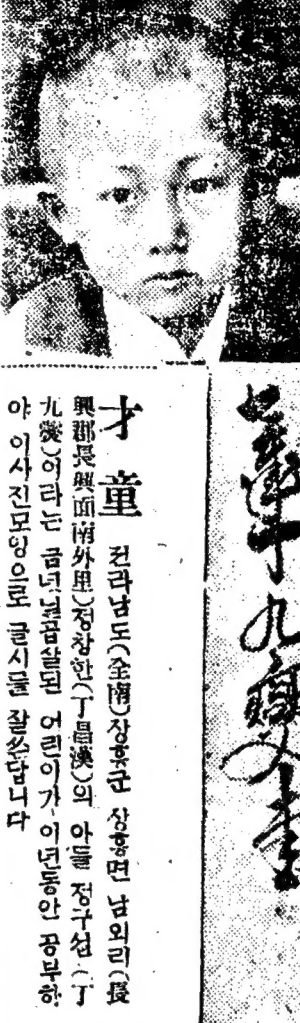 七歲丁九燮書
才童 전라남도(全南)장흥군 장흥면 남외리(長
興郡長興面南外里)정창한(丁昌漢)의 아들 정구섭(丁
九燮)이라는 금년닐곱살된 어린이가 이년동안 공부하
야 이사진모양으로 글시를 잘쓴답니다